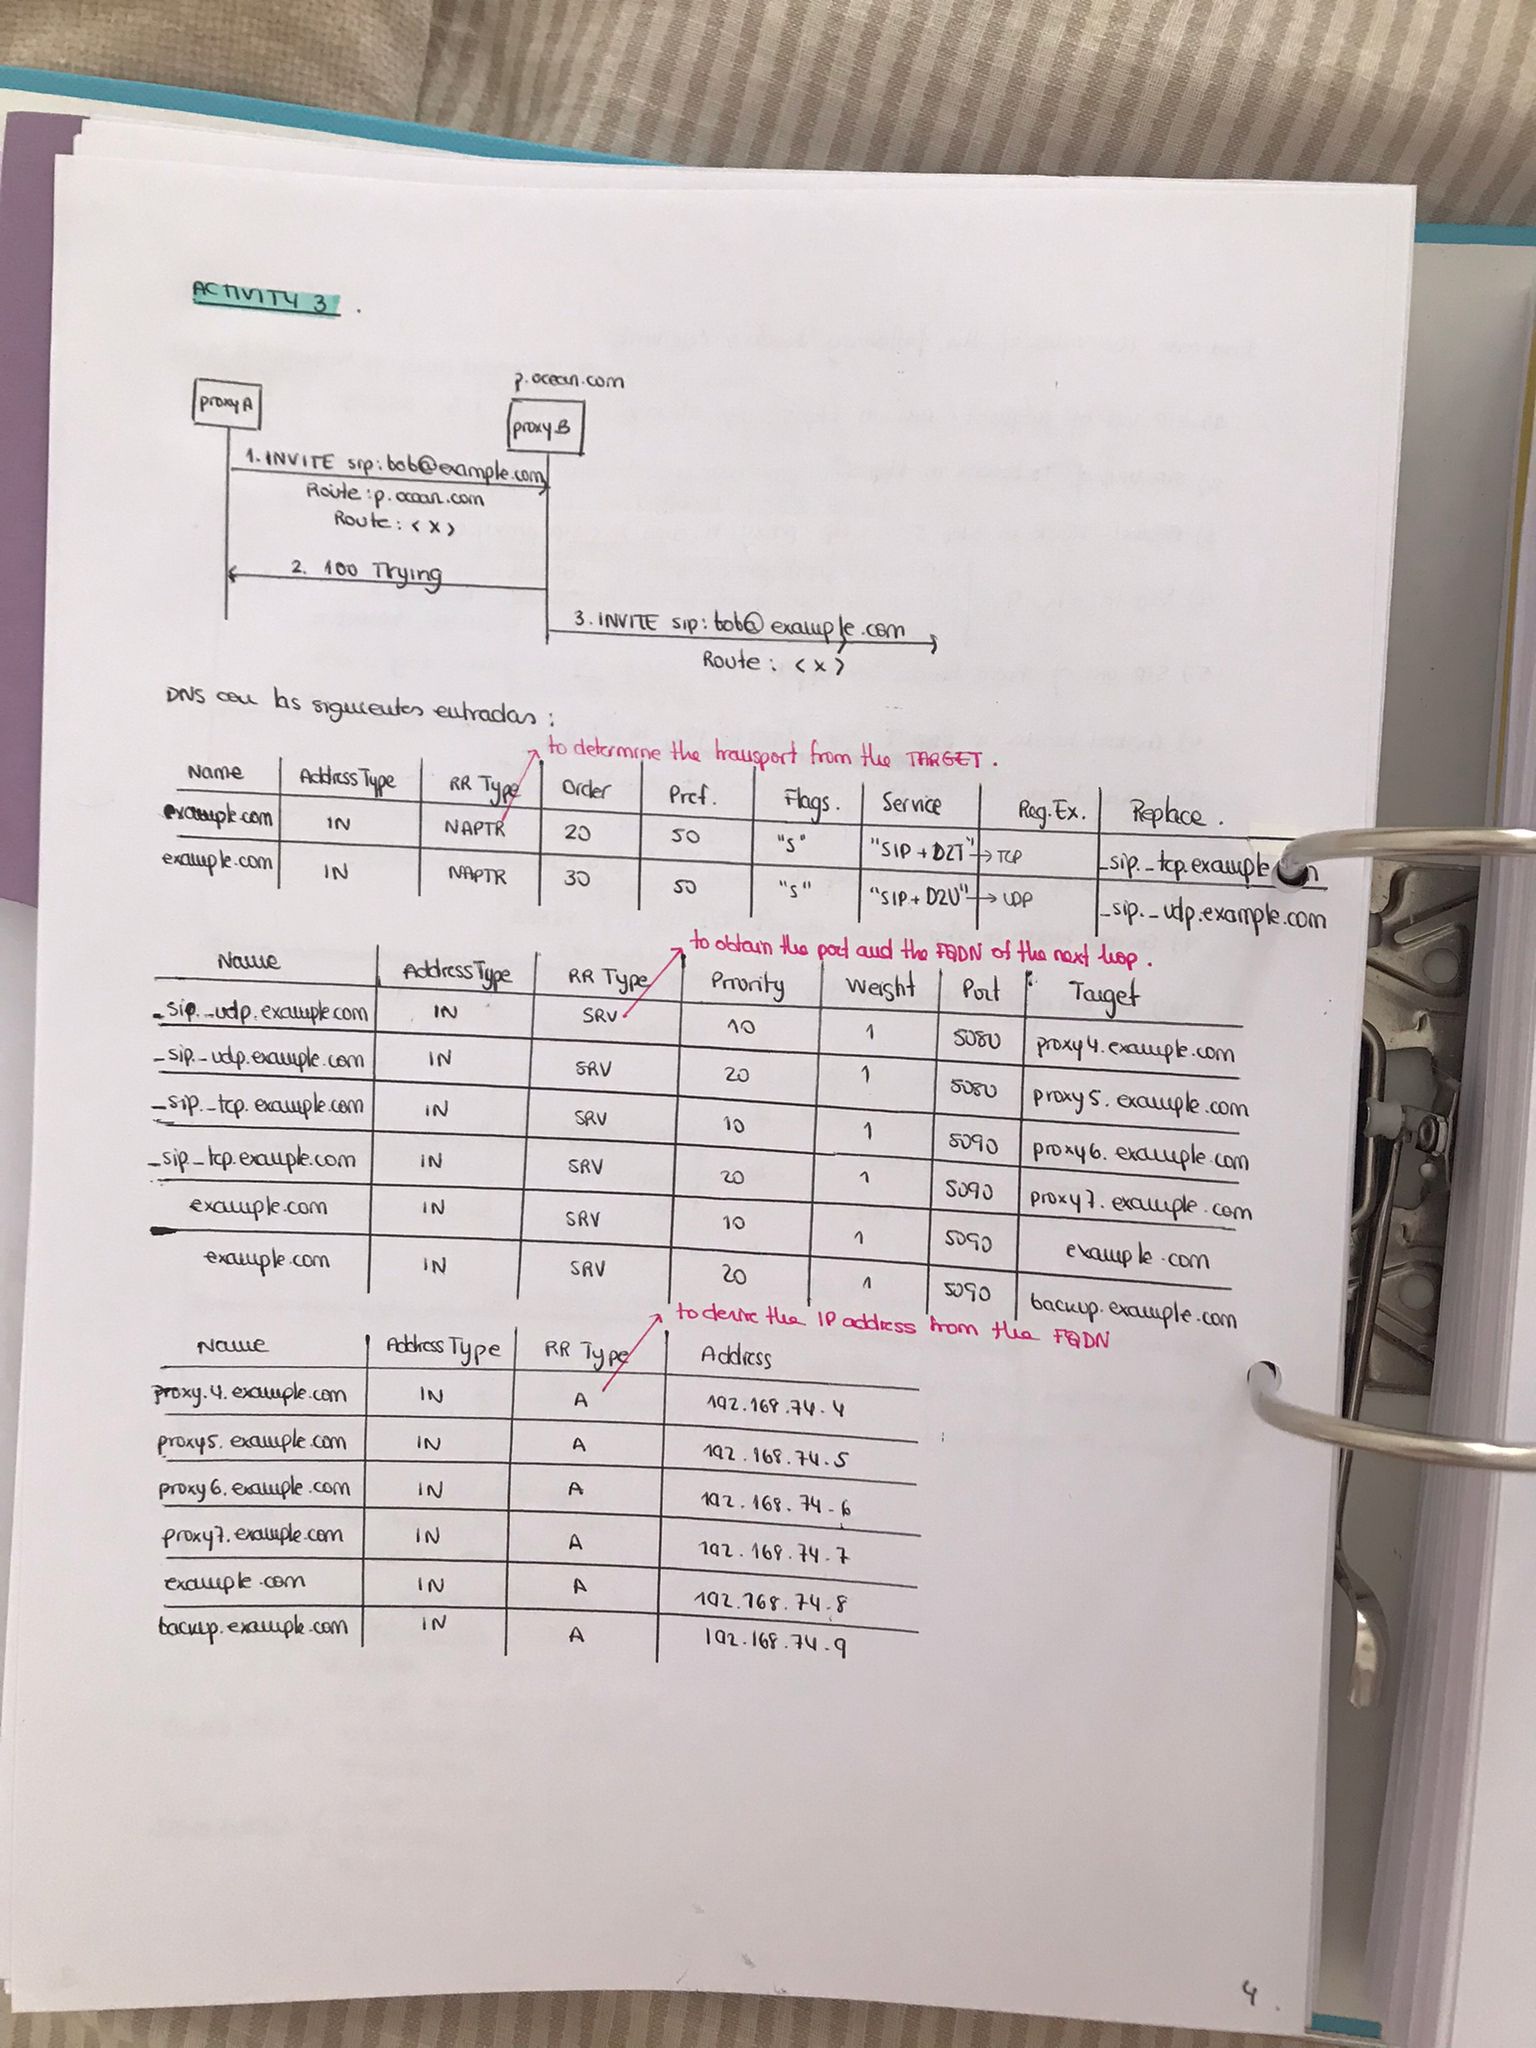 ACTIVITY 3.
p.ocean.com
proxyA
proxyB
1. INVITE sip:bob@example.com
Route: p.ocean.com
Route: <x>
2. 100 Trying
3. INVITE sip: bob@example.com
Route: <x>
DNS con las siguientes entradas:
to determine the transport from the TARGET.
Name Address Type RR Type Order Pref. Flags. Service Reg.Ex. Replace.
example.com IN NAPTR 20 50 "s" "SIP+D2T" → TCP _sip._tcp.example
example.com IN NAPTR 30 50 "s" "SIP+D2U" → UDP _sip._udp.example.com
to obtain the port and the FQDN of the next hop.
Name Address Type RR Type Priority Weight Port Target
_sip._udp.example.com IN SRV 10 1 5080 proxy4.example.com
_sip._udp.example.com IN SRV 20 1 5080 proxy5.example.com
_sip._tcp.example.com IN SRV 10 1 5090 proxy6.example.com
_sip_tcp.example.com IN SRV 20 1 5090 proxy7.example.com
example.com IN SRV 10 1 5090 example.com
example.com IN SRV 20 1 5090 backup.example.com
to derive the IP address from the FQDN
Name Address Type RR Type Address
proxy.4.example.com IN A 192.168.74.4
proxy5.example.com IN A 192.168.74.5
proxy6.example.com IN A 192.168.74.6
proxy7.example.com IN A 192.168.74.7
example.com IN A 192.168.74.8
backup.example.com IN A 192.168.74.9
4.